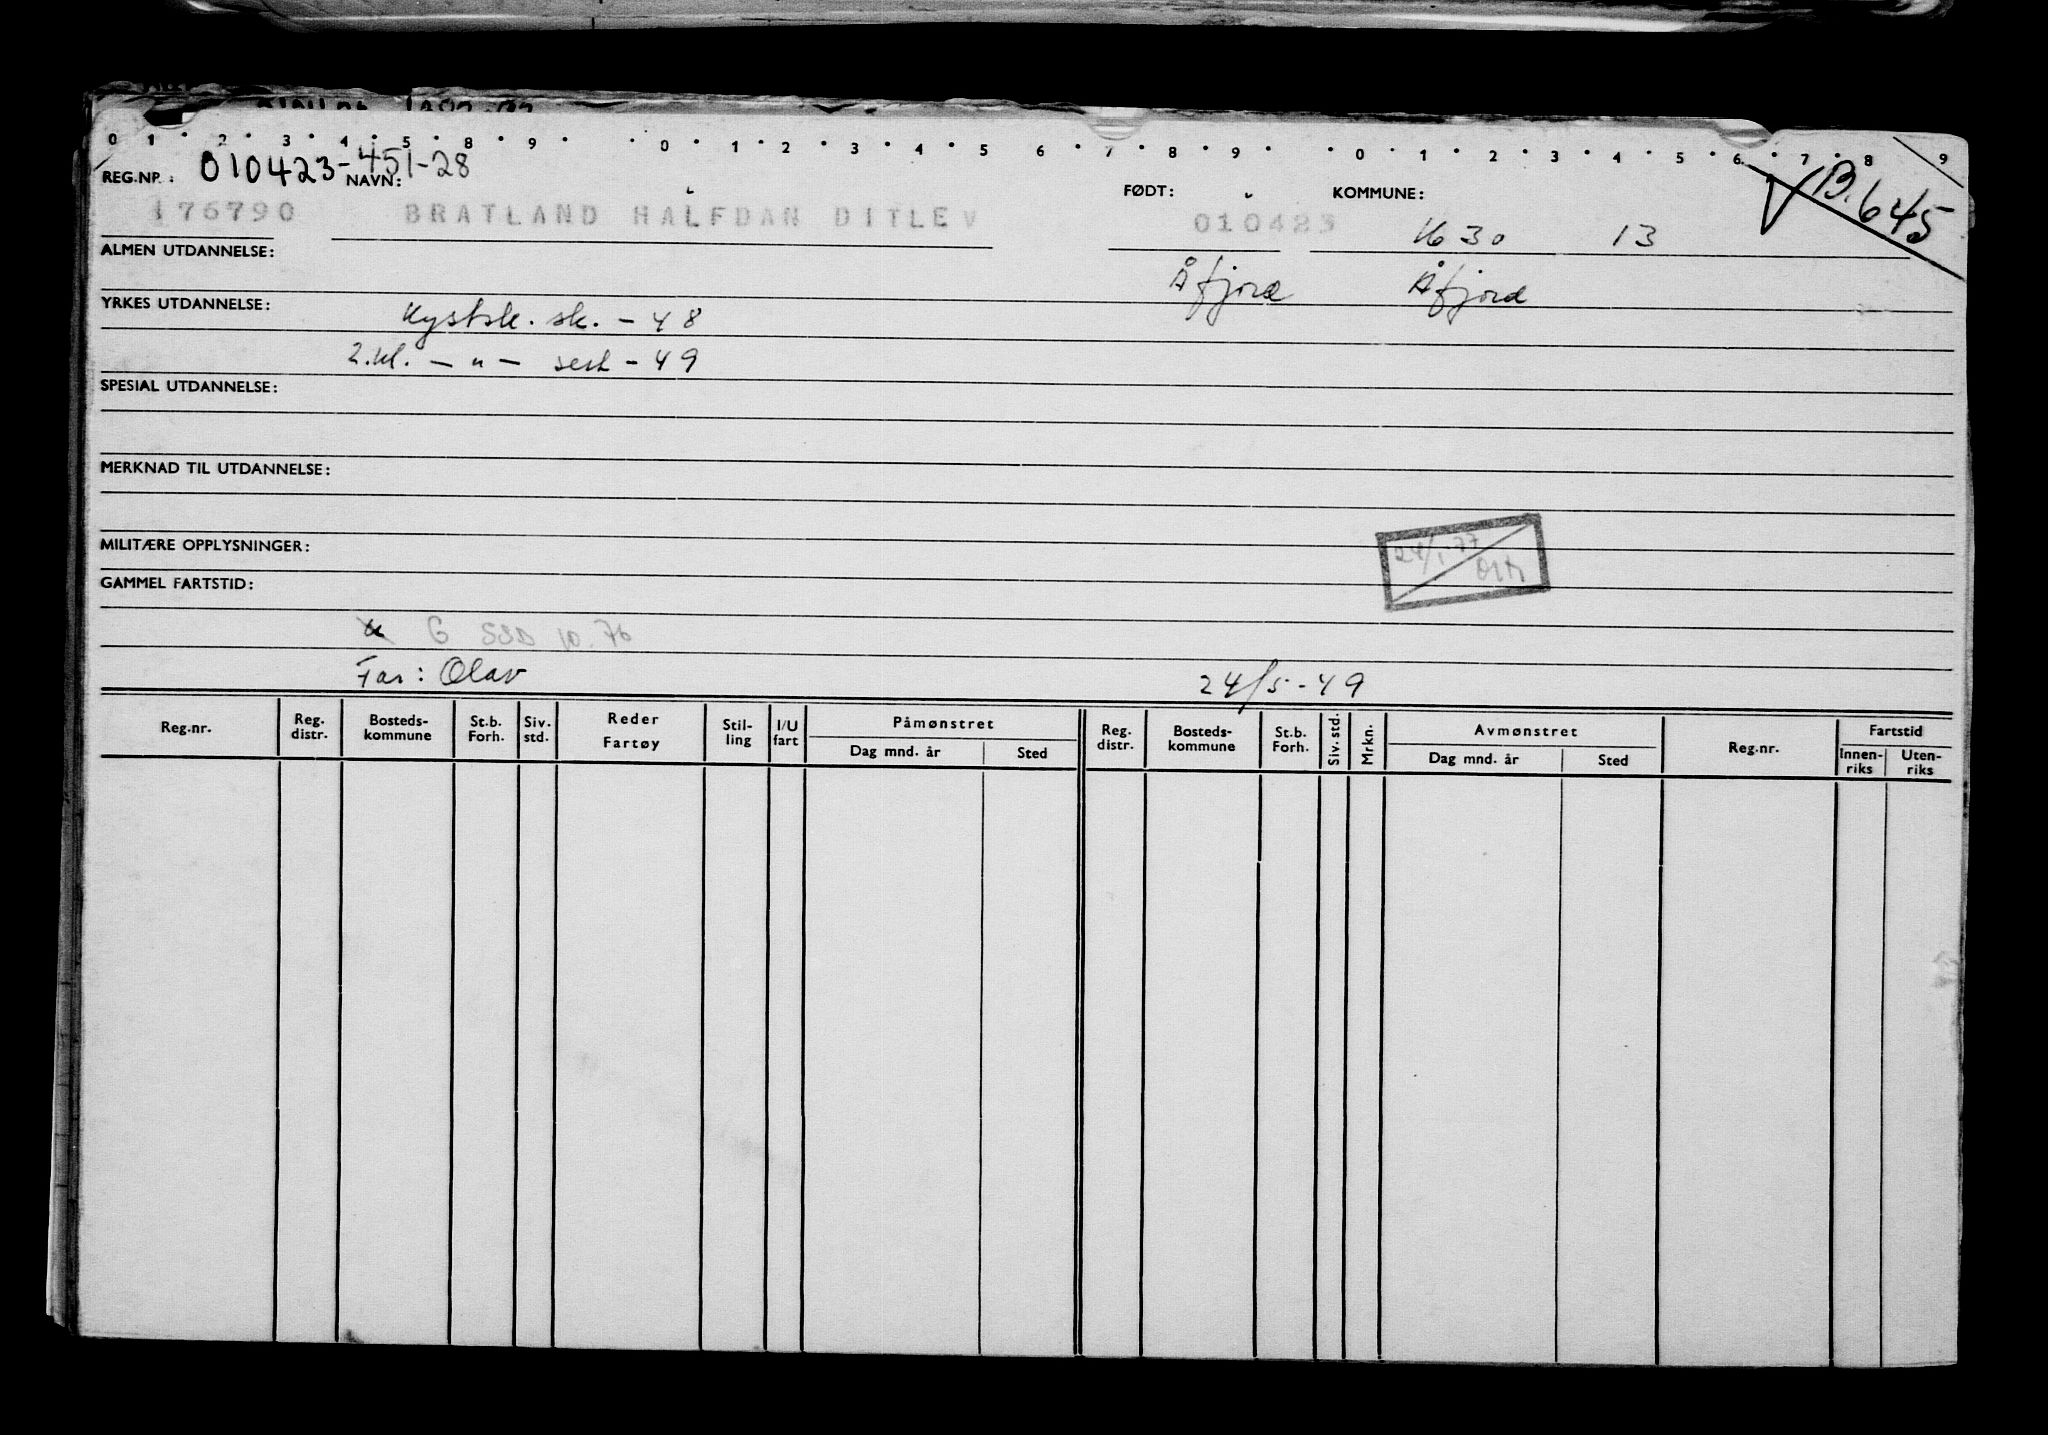 0 1 2 3 4 5 8 9 0 1 2 3 4 5 6 7 8 9 0 1 2 3 4 5 6 7 8 9
010423-451-28
REG.NR.: NAVN: FØDT: KOMMUNE: B.645
176790 BRATLAND HALFDAN DITLEV 010423 1630 13
ALMEN UTDANNELSE: Åfjord Åfjord
YRKES UTDANNELSE: Kystsk. sk. - 48
2.kl. - " - sert - 49
SPESIAL UTDANNELSE:
MERKNAD TIL UTDANNELSE:
MILITÆRE OPPLYSNINGER: 24/1 77
GAMMEL FARTSTID:
G SSD 10.76
Far: Olav 24/5-49
Reg.nr. Reg. distr. Bosteds-kommune St.b. Forh. Siv. std. Reder Fartøy Stil-ling I/U fart Påmønstret Dag mnd. år Sted Reg. distr. Bosteds-kommune St.b. Forh. Siv. std. Mrkn. Avmønstret Dag mnd. år Sted Reg.nr. Fartstid Innen-riks Uten-riks